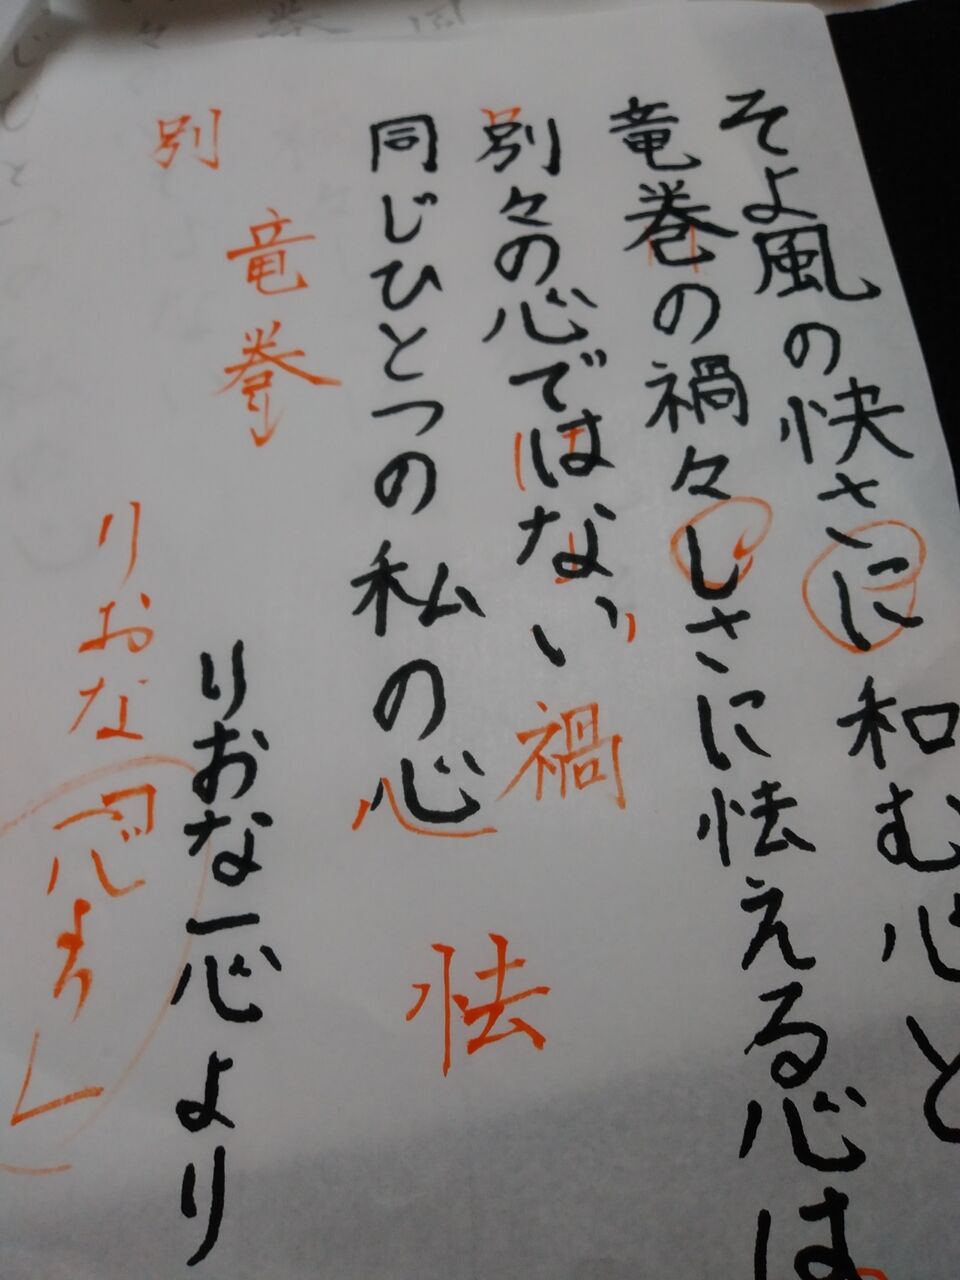 そよ風の快さに和む心と
竜巻の禍々しさに怯える心は
別々の心ではない
同じひとつの私の心
りおな一心より
禍
怯
竜巻
別
りおな「心より」